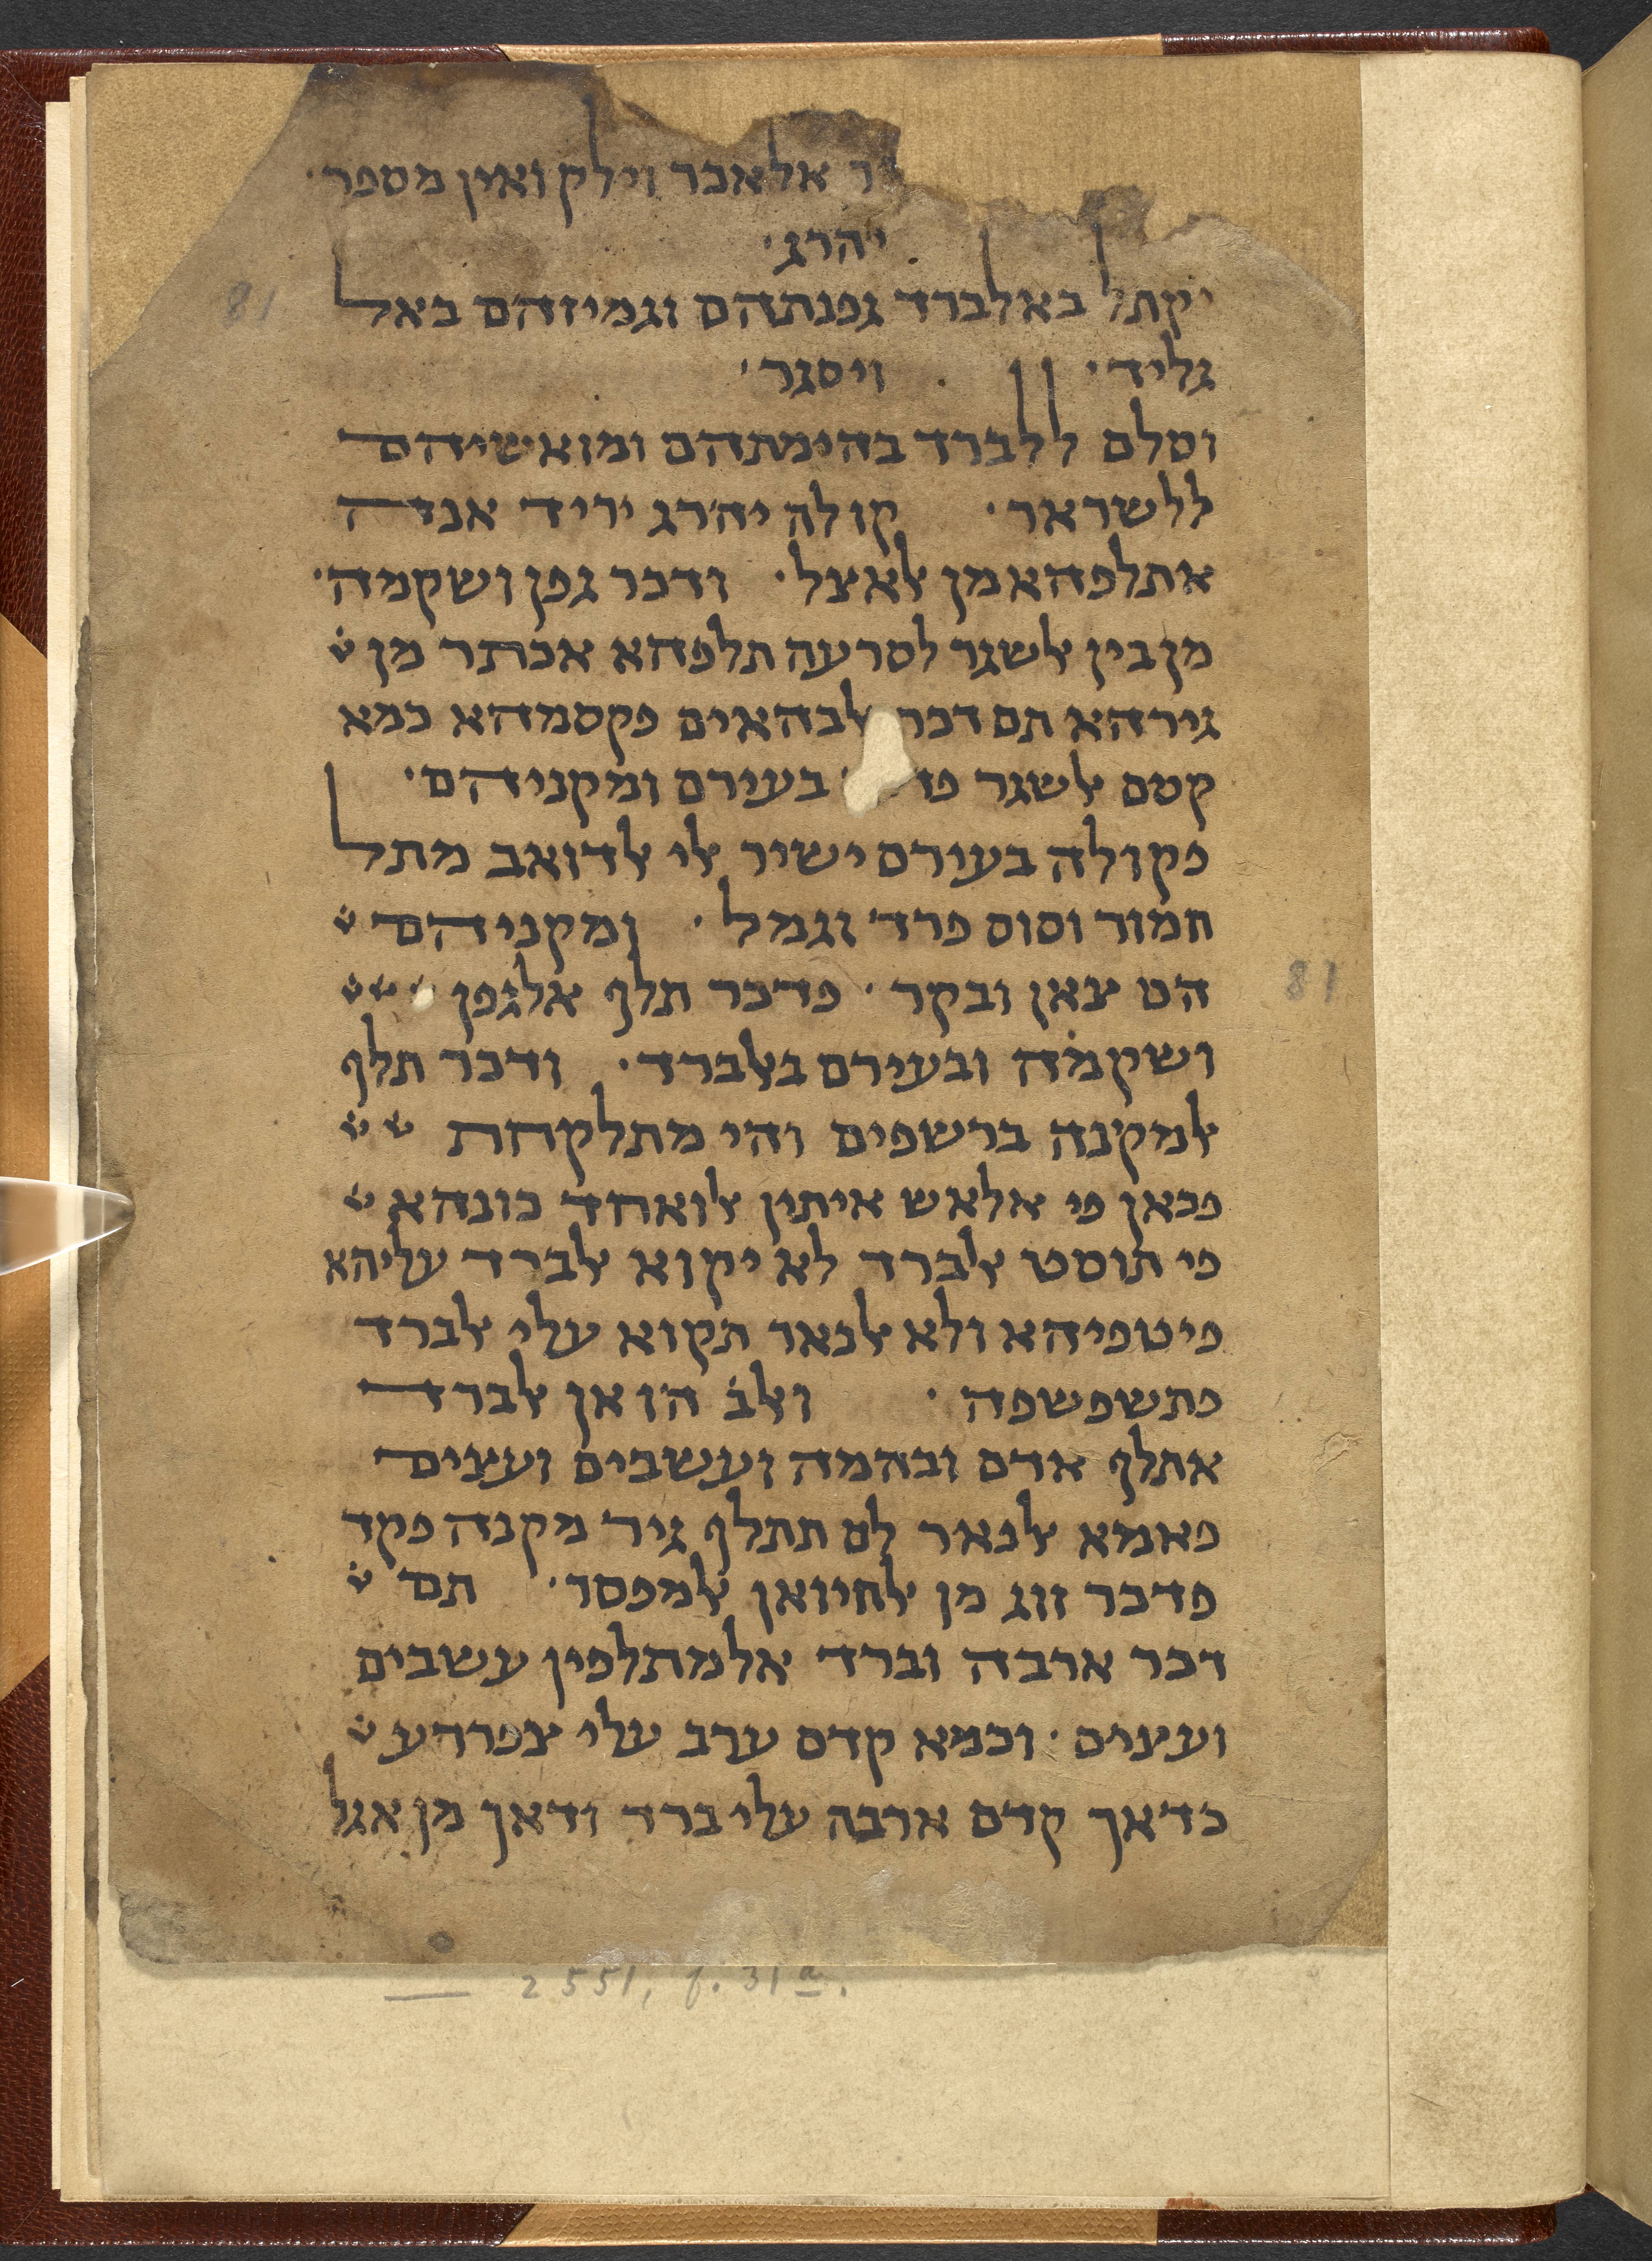 ר אלאכר וילק ואין מספר·
יהרג·
יקתל באלברד גפנתהם וגמיזהם באל
גליד· ויסגר·
וסלם ללברד בהימתהם ומואשיהם
ללשראר· קולה יהרג יריד אנה
אתלפהא מן אלאצל· ודכר גפן ושקמה·
מן בין אלשגר לסרעה תלפהא אכתר מן
גירהא תם דכר אלבהאים פקסמהא כמא
קסם אלשגר בעירם ומקניהם·
פקולה בעירם ישיר אלי אלדואב מתל
חמור וסוס פרד וגמל· ומקניהם
הם צאן ובקר· פדכר תלף אלגפן
ושקמה ובעירם באלברד· ודכר תלף
אלמקנה ברשפים והי מתלקחת
פכאן פי אלאש איתין אלואחד כונהא
פי תוסט אלברד לא יקוא אלברד עליהא
פיטפיהא ולא אלנאר תקוא עלי אלברד
פתשפשפה· ואלב הו אן אלברד
אתלף אדם ובהמה ועשבים ועצים
פאמא אלנאר לם תתלף גיר מקנה פקד
פדכר זוג מן אלחיואן אלמפסד· תם
דכר ארבה וברד אלמתלפין עשבים
ועצים· וכמא קדם ערב עלי צפרדע
כדאך קדם ארבה עלי ברד ודאך מן אגל
81
81
2551, f. 31a.